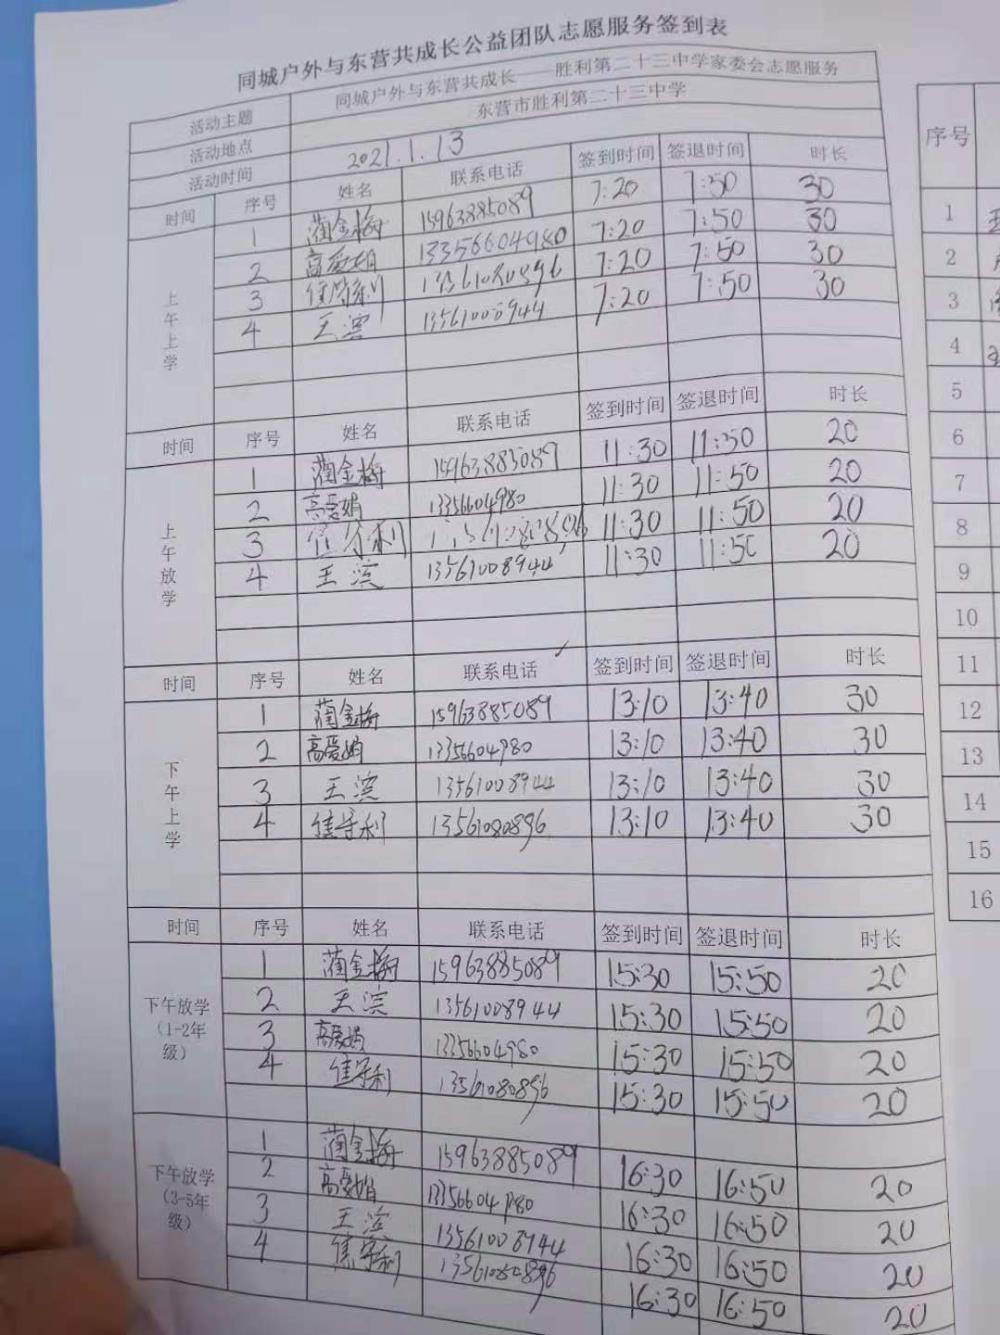 同城户外与东营共成长公益团队志愿服务签到表
活动主题 同城户外与东营共成长——胜利第二十三中学家委会志愿服务
活动地点 东营市胜利第二十三中学
活动时间 2021.1.13
时间 序号 姓名 联系电话 签到时间 签退时间 时长
上午上学
1 蔺金梅 15963885089 7:20 7:50 30
2 高爱娟 13356604980 7:20 7:50 30
3 焦守利 13561080896 7:20 7:50 30
4 王滨 13561008944 7:20 7:50 30
时间 序号 姓名 联系电话 签到时间 签退时间 时长
上午放学
1 蔺金梅 15963885089 11:30 11:50 20
2 高爱娟 1335604980 11:30 11:50 20
3 焦守利 11:30 11:50 20
4 王滨 13561008944 11:30 11:50 20
时间 序号 姓名 联系电话 签到时间 签退时间 时长
下午上学
1 蔺金梅 15963885089 13:10 13:40 30
2 高爱娟 1335604980 13:10 13:40 30
3 王滨 13561008944 13:10 13:40 30
4 焦守利 13561080896 13:10 13:40 30
时间 序号 姓名 联系电话 签到时间 签退时间 时长
下午放学(1-2年级)
1 蔺金梅 15963885089 15:30 15:50 20
2 王滨 13561008944 15:30 15:50 20
3 高爱娟 13356604980 15:30 15:50 20
4 焦守利 13561080896 15:30 15:50 20
下午放学(3-5年级)
1 蔺金梅 15963885089 16:30 16:50 20
2 高爱娟 13356604980 16:30 16:50 20
3 王滨 13561008944 16:30 16:50 20
4 焦守利 13561080896 16:30 16:50 20
序号
1
2
3
4
5
6
7
8
9
10
11
12
13
14
15
16